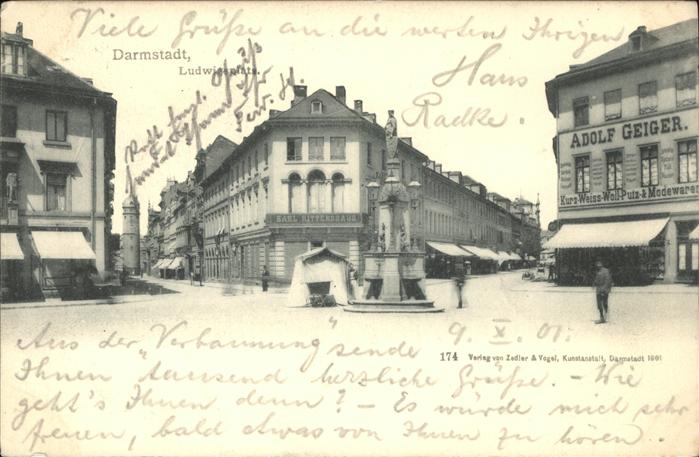 Viele Grüße an die werten Ihrigen
Hans
Radke.
Darmstadt,
Ludwigsplatz.
ADOLF GEIGER.
Kurz-Weiss-Woll-Putz & Modewaren
KARL RITTERSHAUS
9. X. 01.
174 Verlag von Zedler & Vogel, Kunstanstalt, Darmstadt 1901
Aus der "Verbannung" sende
Ihnen tausend herzliche Grüße. - Wie
geht's Ihnen denn? - Es würde mich sehr
freuen, bald etwas von Ihnen zu hören.